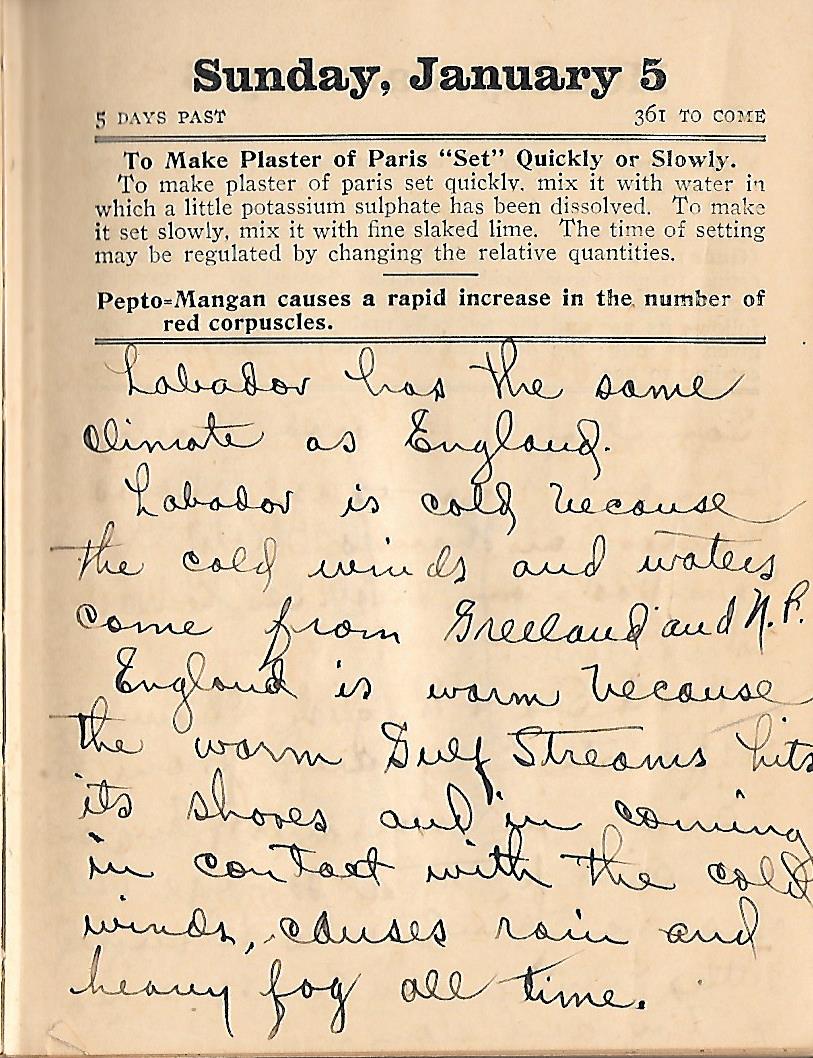 Sunday, January 5
5 DAYS PAST 361 TO COME
To Make Plaster of Paris "Set" Quickly or Slowly.
To make plaster of paris set quickly, mix it with water in
which a little potassium sulphate has been dissolved. To make
it set slowly, mix it with fine slaked lime. The time of setting
may be regulated by changing the relative quantities.
Pepto=Mangan causes a rapid increase in the number of
red corpuscles.
Labador has the same
climate as England.
Labador is cold because
the cold winds and waters
come from Greeland and N. P.
England is warm because
the warm Gulf Streams hits
its shores and in coming
in contact with the cold
winds, causes rain and
heavy fog all time.